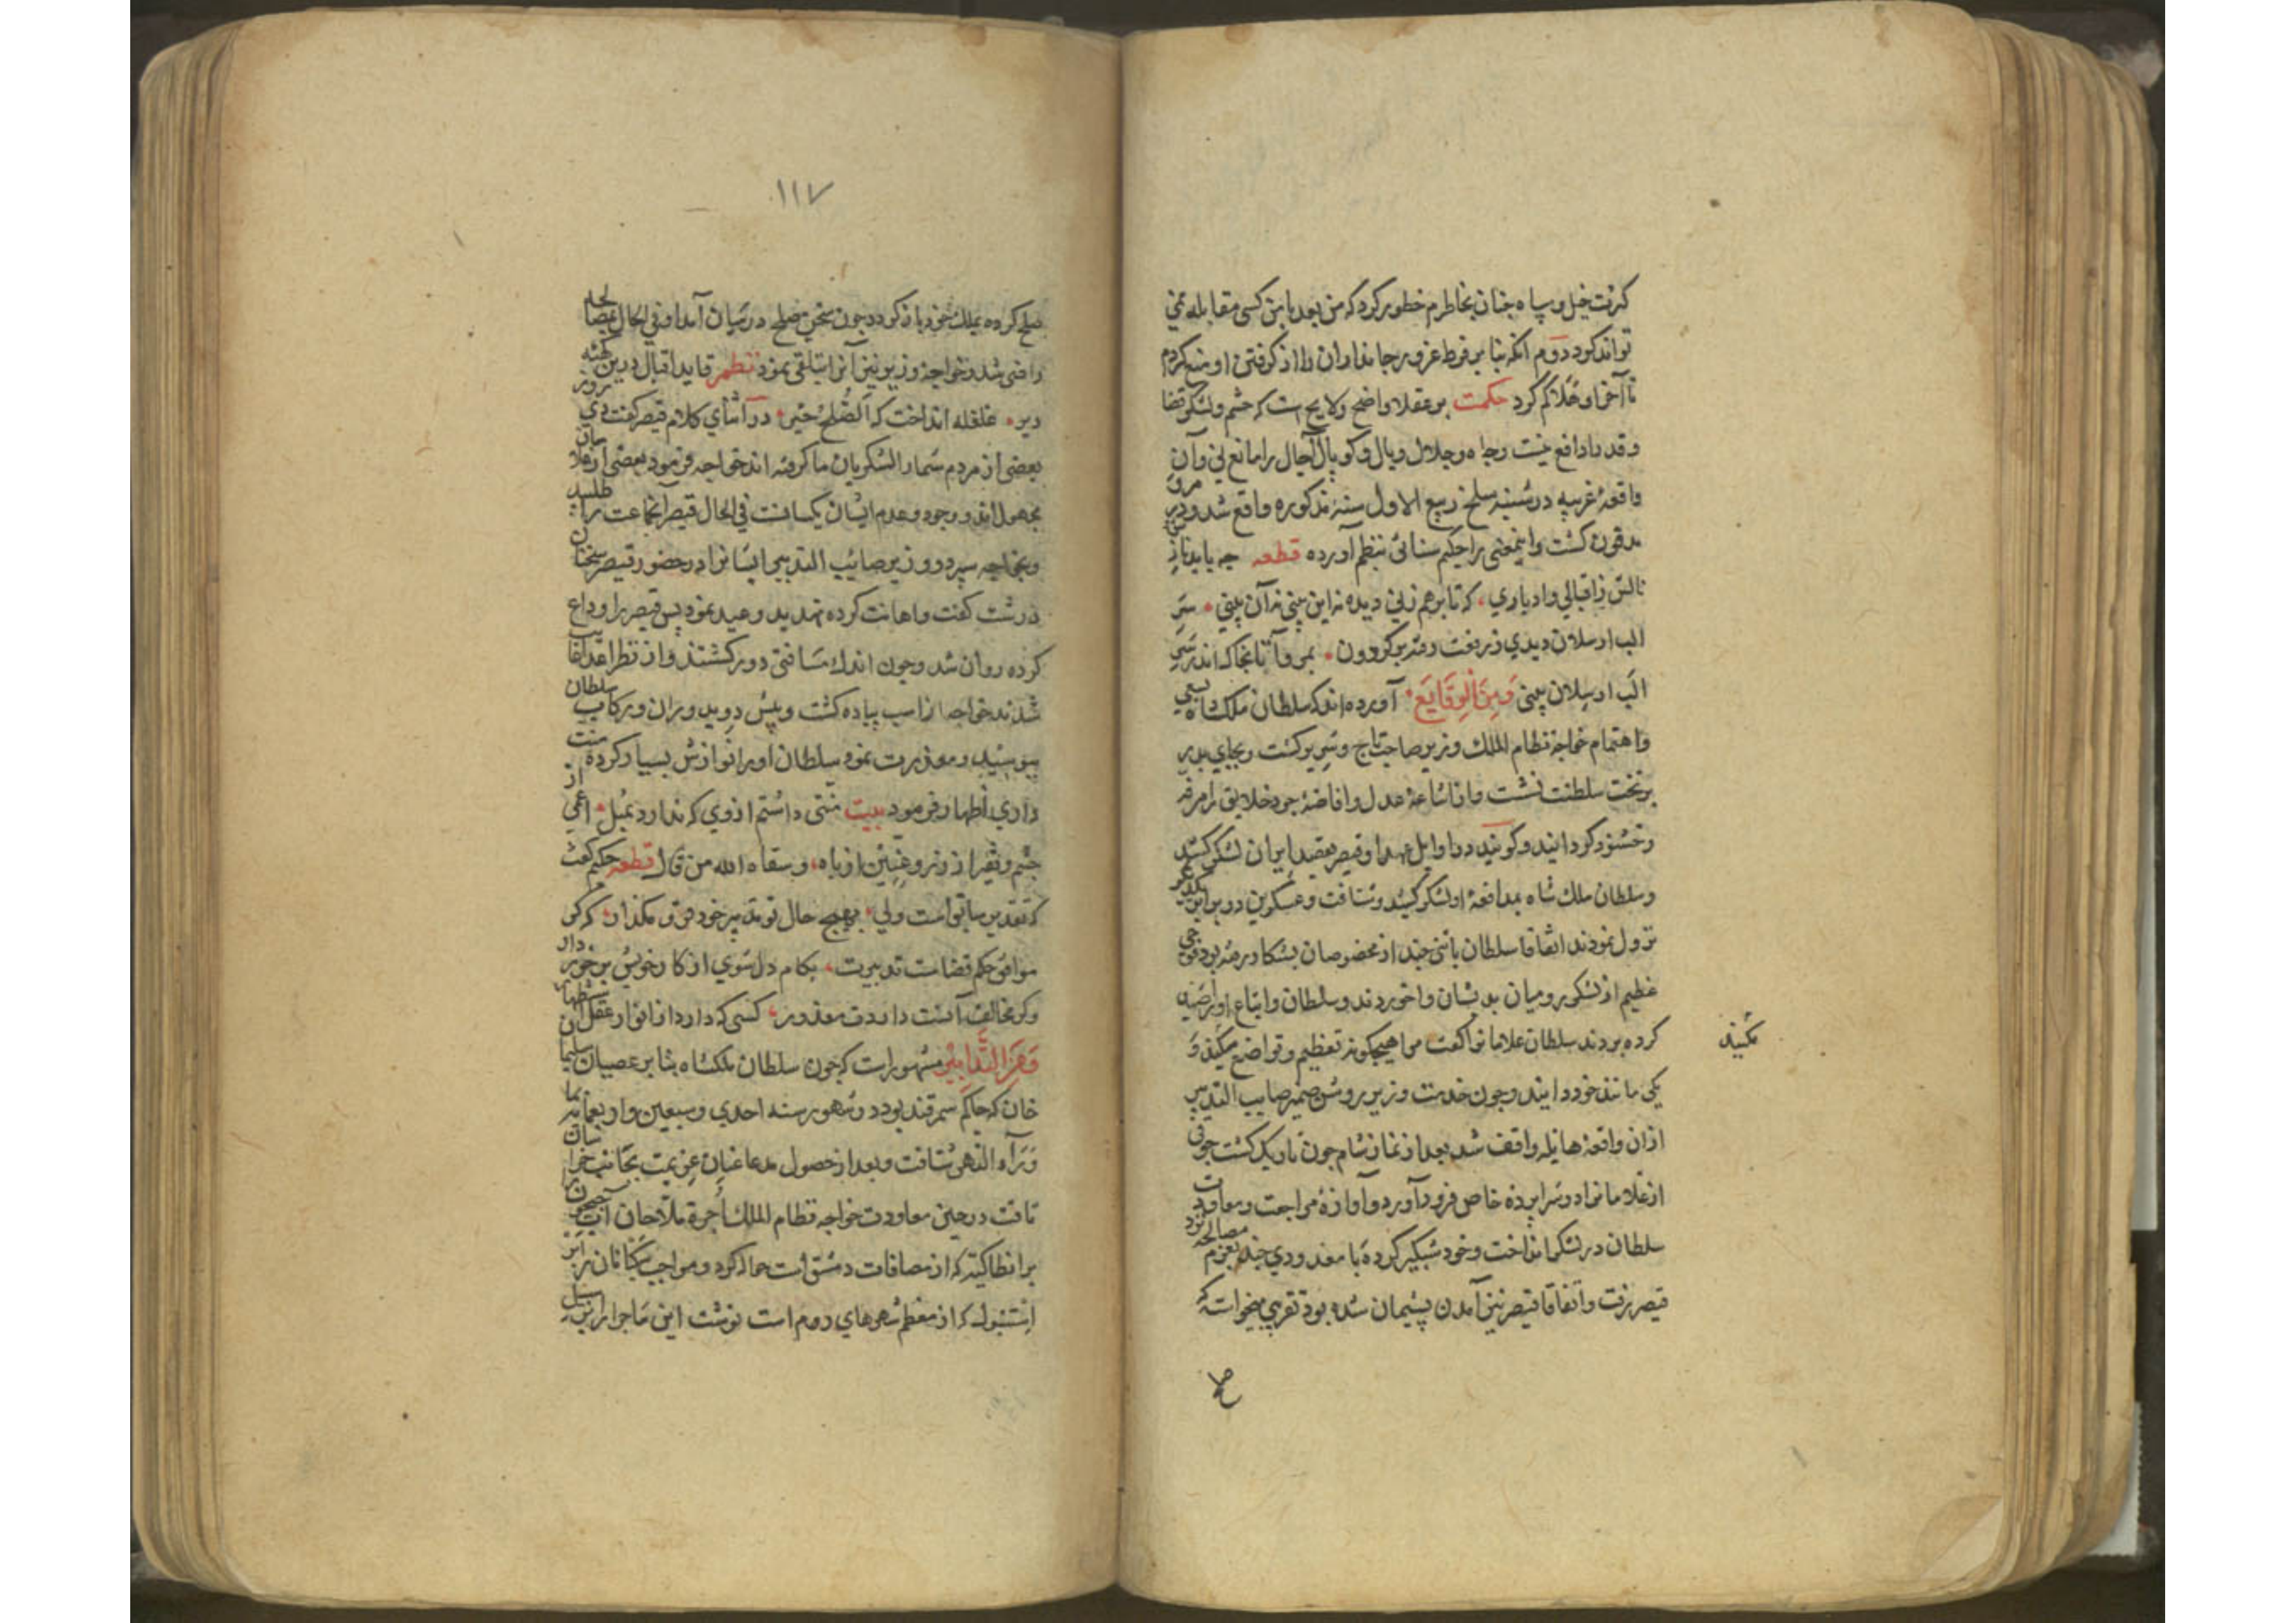 کثرت خیل و سپاه جنان بخاطرم خطور کرد که من بعد با من کسی مقابله نمی
تواند کرد دوم آنکه بنا بر فرط غرور جانداران را از گرفتن او منع کردم
تا آخر او هلاکم کرد حکمت بر عقلا واضح و لایح است که حشم و لشکر قضا
و قدر را دافع نیست و جاه و جلال و بال و کوپال آجال را مانع نی و آن
واقعهٔ غریبه در شنبه سلخ ربیع الاول سنهٔ مذکوره واقع شد و در مرو
مدفون کشت و اینمعنی را حکیم سنائی بنظم آورده قطعه چه باید نازش
نالش ز اقبالی و ادباری که تا برهم زنی دیده نه این بینی نه آن بینی سر
الب ارسلان دیدی ز رفعت رفته بر کردون بمرو آ تا بخاک اندر سر
الب ارسلان بینی ومن الوقایع آورده اند که سلطان ملکشاه بسعی
و اهتمام خواجه نظام الملک وزیر صاحب تاج و سریر کشت و بجای پدر
بر تخت سلطنت نشست و از اشاعهٔ عدل و افاضهٔ جود خلایق را مرفه
و خشنود کردانید و کویند در اوایل عهد او قیصر بقصد ایران لشکر کشید
و سلطان ملک شاه بمدافعهٔ او لشکر کشید و شتافت و عسکرین در برابر یکدیکر
نزول نمودند اتفاقا سلطان با تنی چند از مخصوصان بشکار رفته بود فوجی
عظیم از لشکر رومیان بدیشان واخوردند و سلطان و اتباع او را صید
کرده بردند سلطان غلامانرا کفت مرا هیچکونه تعظیم و تواضع مکنید و
مکنید
یکی مانند خود دانید و چون خدمت وزیر روشن ضمیر صایب التدبیر
ازان واقعهٔ هایله واقف شد بعد از نماز شام چون تاریک کشت جوقی
از غلامانرا در سراپردهٔ خاص فرود آورد و آوازهٔ مراجعت و معاودت
سلطان در لشکر انداخت و خود شبکیر کرده با معدودی چند بعزم مصالحه نزد
قیصر رفت و اتفاقا قیصر نیز از آمدن پشیمان شده بود تقریبی میخواست که
صلح
۱۱۷
صلح کرده بملک خود باز کردد چون سخن صلح در میان آمد او فی الحال بمصالحه
راضی شد و خواجه وزیر نیز آنرا تلقی نمود نظم قاید اقبال درین کهنه
دیر غلغله انداخت که الصلح خیر در اثنای کلام قیصر کفت دی روز
بعضی از مردم شما را لشکریان ما کرفته اند خواجه فرمود بعضی از غلامان
مجهول اند و وجود و عدم ایشان یکسانست فی الحال قیصر آنجماعت را
و بخواجه سپرد و وزیر صایب التدبیر ایشانرا در حضور قیصر سخنان
درشت کفت و اهانت کرده تهدید و وعید نمود پس قیصر را وداع
کرده روان شد و چون اندک مسافتی دور کشتند و از نظر اعدا غایب
شدند خواجه از اسب پیاده کشت و پیش دوید و ران و رکاب سلطان
ببوسید و معذرت نمود سلطان او را نوازش بسیار کرده منت
داری اظهار فرمود بیت منتی داشتم از وی که ندارد بمثل اعمی از
چشم و فقیر از زر و عنین از باه و سقاه الله من قال قطعه حکیم کفت
که تقدیر سابق است ولی بهیچ حال تو تدبیر خود فرو مکذار که کر
موافق حکم قضاست تدبیرت بکام دل شوی از کار خویش برخوردار
و کر مخالف آنست داردت معذور کسی که دارد از انوار عقل استظهار
ومن التدابیر مشهور است که چون سلطان ملکشاه بنا بر عصیان سلیمان
خان که حاکم سمرقند بود در شهور سنه احدی و سبعین و اربعمائه بما
وراء النهر شتافت و بعد از حصول مدعا عنان عزیمت بجانب خراسان
تافت در حین معاودت خواجه نظام الملک اجرهٔ ملاحان آب جیحون
بر انطاکیه که از مضافات دمشق است حواله کرد و مواجب
استنبول که از معظم شهرهای روم است نوشت این ماجرا